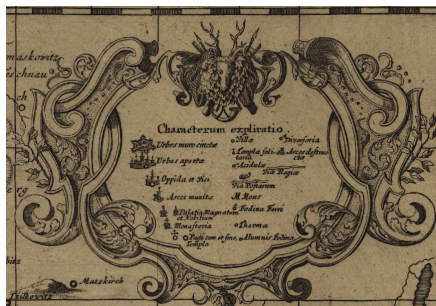 maskowitz
schnau
ch
Characterum explicatio
Urbes muro cinctæ
Urbes apertæ
Oppida et Vici
Arces munitæ
Palatia Magnatum
et Nobilium
Monasteria
Pagi cum et sine
Templa
Villæ
Templa soli-
taria
Acidulæ
Viæ Regiæ
Via Postarum
M. Mons
Fodina Ferri
Thermæ
Aluminis Fodina
Arces destruc-
tæ
erg
bitz
Matzkirch